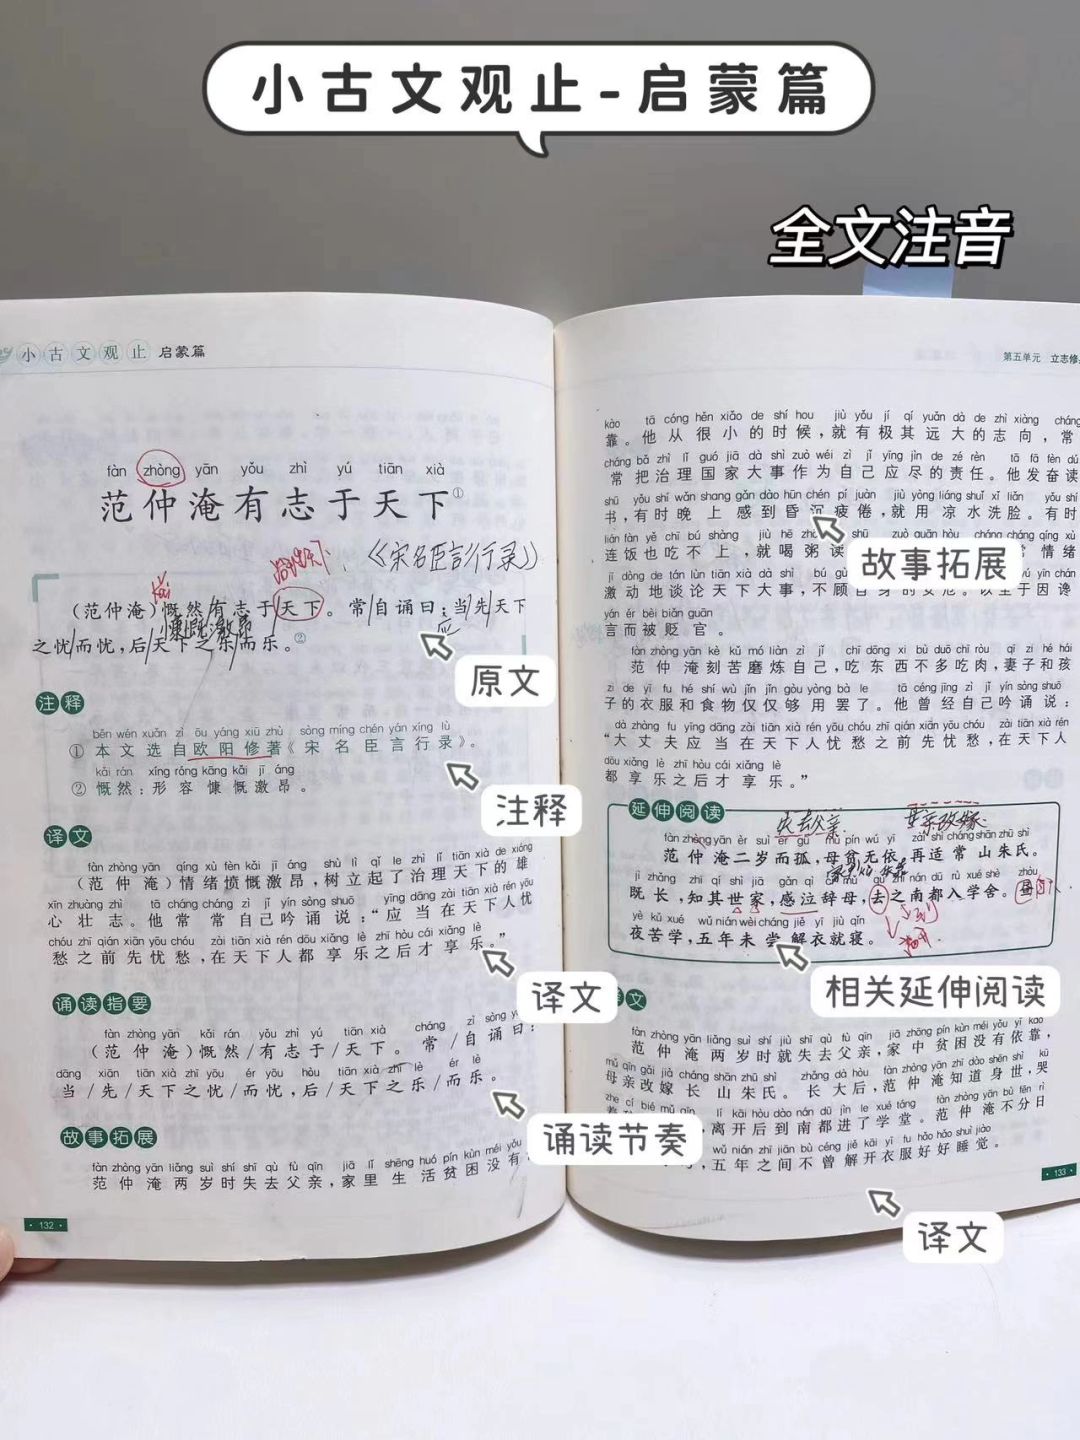 小古文观止-启蒙篇
全文注音
小古文观止 启蒙篇
fàn zhòng yān yǒu zhì yú tiān xià
范仲淹有志于天下①
《宋名臣言行录》
kǎi
(范仲淹)慨然/有志于/天下。常/自诵曰:当/先/天下
慷慨激昂
应
之忧/而忧,后/天下之乐/而乐。②
原文
注释
běn wén xuǎn zì ōu yáng xiū zhù sòng míng chén yán xíng lù
①本文选自欧阳修著《宋名臣言行录》。
kǎi rán xíng róng kāng kǎi jī áng
②慨然:形容慷慨激昂。
注释
译文
fàn zhòng yān qíng xù fèn kǎi jī áng shù lì qǐ le zhì lǐ tiān xià de xióng
(范仲淹)情绪愤慨激昂,树立起了治理天下的雄
xīn zhuàng zhì tā cháng cháng zì jǐ yín sòng shuō yīng dāng zài tiān xià rén yōu
心壮志。他常常自己吟诵说:“应当在天下人忧
chóu zhī qián xiān yōu chóu zài tiān xià rén dōu xiǎng lè zhī hòu cái xiǎng lè
愁之前先忧愁,在天下人都享乐之后才享乐。”
译文
诵读指要
fàn zhòng yān kǎi rán yǒu zhì yú tiān xià cháng zì sòng yuē
(范仲淹)慨然/有志于/天下。常/自诵曰:
dāng xiān tiān xià zhī yōu ér yōu hòu tiān xià zhī lè ér lè
当/先/天下之忧/而忧,后/天下之乐/而乐。
诵读节奏
故事拓展
fàn zhòng yān liǎng suì shí shī qù fù qīn jiā lǐ shēng huó pín kùn méi yǒu
范仲淹两岁时失去父亲,家里生活贫困没有
·132·
第五单元 立志修
kào tā cóng hěn xiǎo de shí hou jiù yǒu jí qí yuǎn dà de zhì xiàng cháng
靠。他从很小的时候,就有极其远大的志向,常
cháng bǎ zhì lǐ guó jiā dà shì zuò wéi zì jǐ yīng jìn de zé rèn tā fā fèn dú
常把治理国家大事作为自己应尽的责任。他发奋读
shū yǒu shí wǎn shang gǎn dào hūn chén pí juàn jiù yòng liáng shuǐ xǐ liǎn yǒu shí
书,有时晚上感到昏沉疲倦,就用凉水洗脸。有时
lián fàn yě chī bú shàng jiù hē zhōu zuò guān hòu cháng cháng qíng xù
连饭也吃不上,就喝粥读 常情绪
故事拓展
jī dòng de tán lùn tiān xià dà shì bú gù yīn chán
激动地谈论天下大事,不顾自身的安危。以至于因谗
yán ér bèi biǎn guān
言而被贬官。
fàn zhòng yān kè kǔ mó liàn zì jǐ chī dōng xi bù duō chī ròu qī zi hé hái
范仲淹刻苦磨炼自己,吃东西不多吃肉,妻子和孩
zi de yī fu hé shí wù jǐn jǐn gòu yòng bà le tā céng jīng zì jǐ yín sòng shuō
子的衣服和食物仅仅够用罢了。他曾经自己吟诵说:
dà zhàng fu yīng dāng zài tiān xià rén yōu chóu zhī qián xiān yōu chóu zài tiān xià rén
“大丈夫应当在天下人忧愁之前先忧愁,在天下人
dōu xiǎng lè zhī hòu cái xiǎng lè
都享乐之后才享乐。”
延伸阅读
失去父亲 母亲改嫁
fàn zhòng yān èr suì ér gū mǔ pín wú yī zài shì cháng shān zhū shì
范仲淹二岁而孤,母贫无依。再适常山朱氏。
jì zhǎng zhī qí shì jiā gǎn qì cí mǔ qù zhī nán dū rù xué shè zhòu
既长,知其世家,感泣辞母,去之南都入学舍。昼
yè kǔ xué wǔ nián wèi cháng jiě yī jiù qǐn
夜苦学,五年未尝解衣就寝。
相关延伸阅读
文
fàn zhòng yān liǎng suì shí jiù shī qù fù qīn jiā zhōng pín kùn méi yǒu yī kào
范仲淹两岁时就失去父亲,家中贫困没有依靠,
mǔ qīn gǎi jià cháng shān zhū shì zhǎng dà hòu fàn zhòng yān zhī dào shēn shì kū
母亲改嫁长山朱氏。长大后,范仲淹知道身世,哭
zhe cí bié mǔ qīn lí kāi hòu dào nán dū jìn le xué táng fàn zhòng yān bù fēn rì
离开后到南都进了学堂。范仲淹不分日
wǔ nián zhī jiān bù céng jiě kāi yī fu hǎo hǎo shuì jiào
,五年之间不曾解开衣服好好睡觉。
·133·
译文